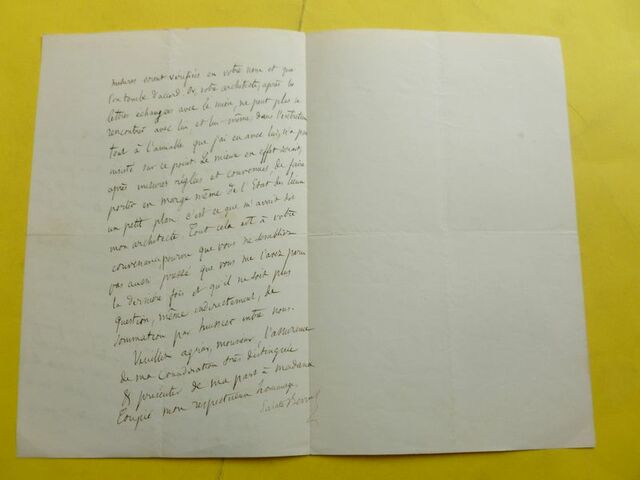 mesures soient vérifiées en votre nom et que
l'on tombe d'accord. Or, votre architecte, après les
lettres échangées avec le mien, ne peut plus se
rencontrer avec lui, et lui-même, dans l'entretien
tout à l'amiable que j'ai eu avec lui, n'a pas
insisté sur ce point. Le mieux en effet serait,
après mesures réglées et convenues, de faire
porter en marge même de l'Etat des lieux
un petit plan : c'est ce que m'avait dit
mon architecte. Tout cela est à votre
convenance pourvu que vous ne sembliez
pas aussi pressé que vous me l'avez paru
la dernière fois et qu'il ne soit plus
question, même indirectement, de
sommation par huissier entre nous.
Veuillez agréer, monsieur, l'assurance
de ma considération très distinguée
& présenter de ma part à madame
mon respectueux hommage.
Sainte-Beuve